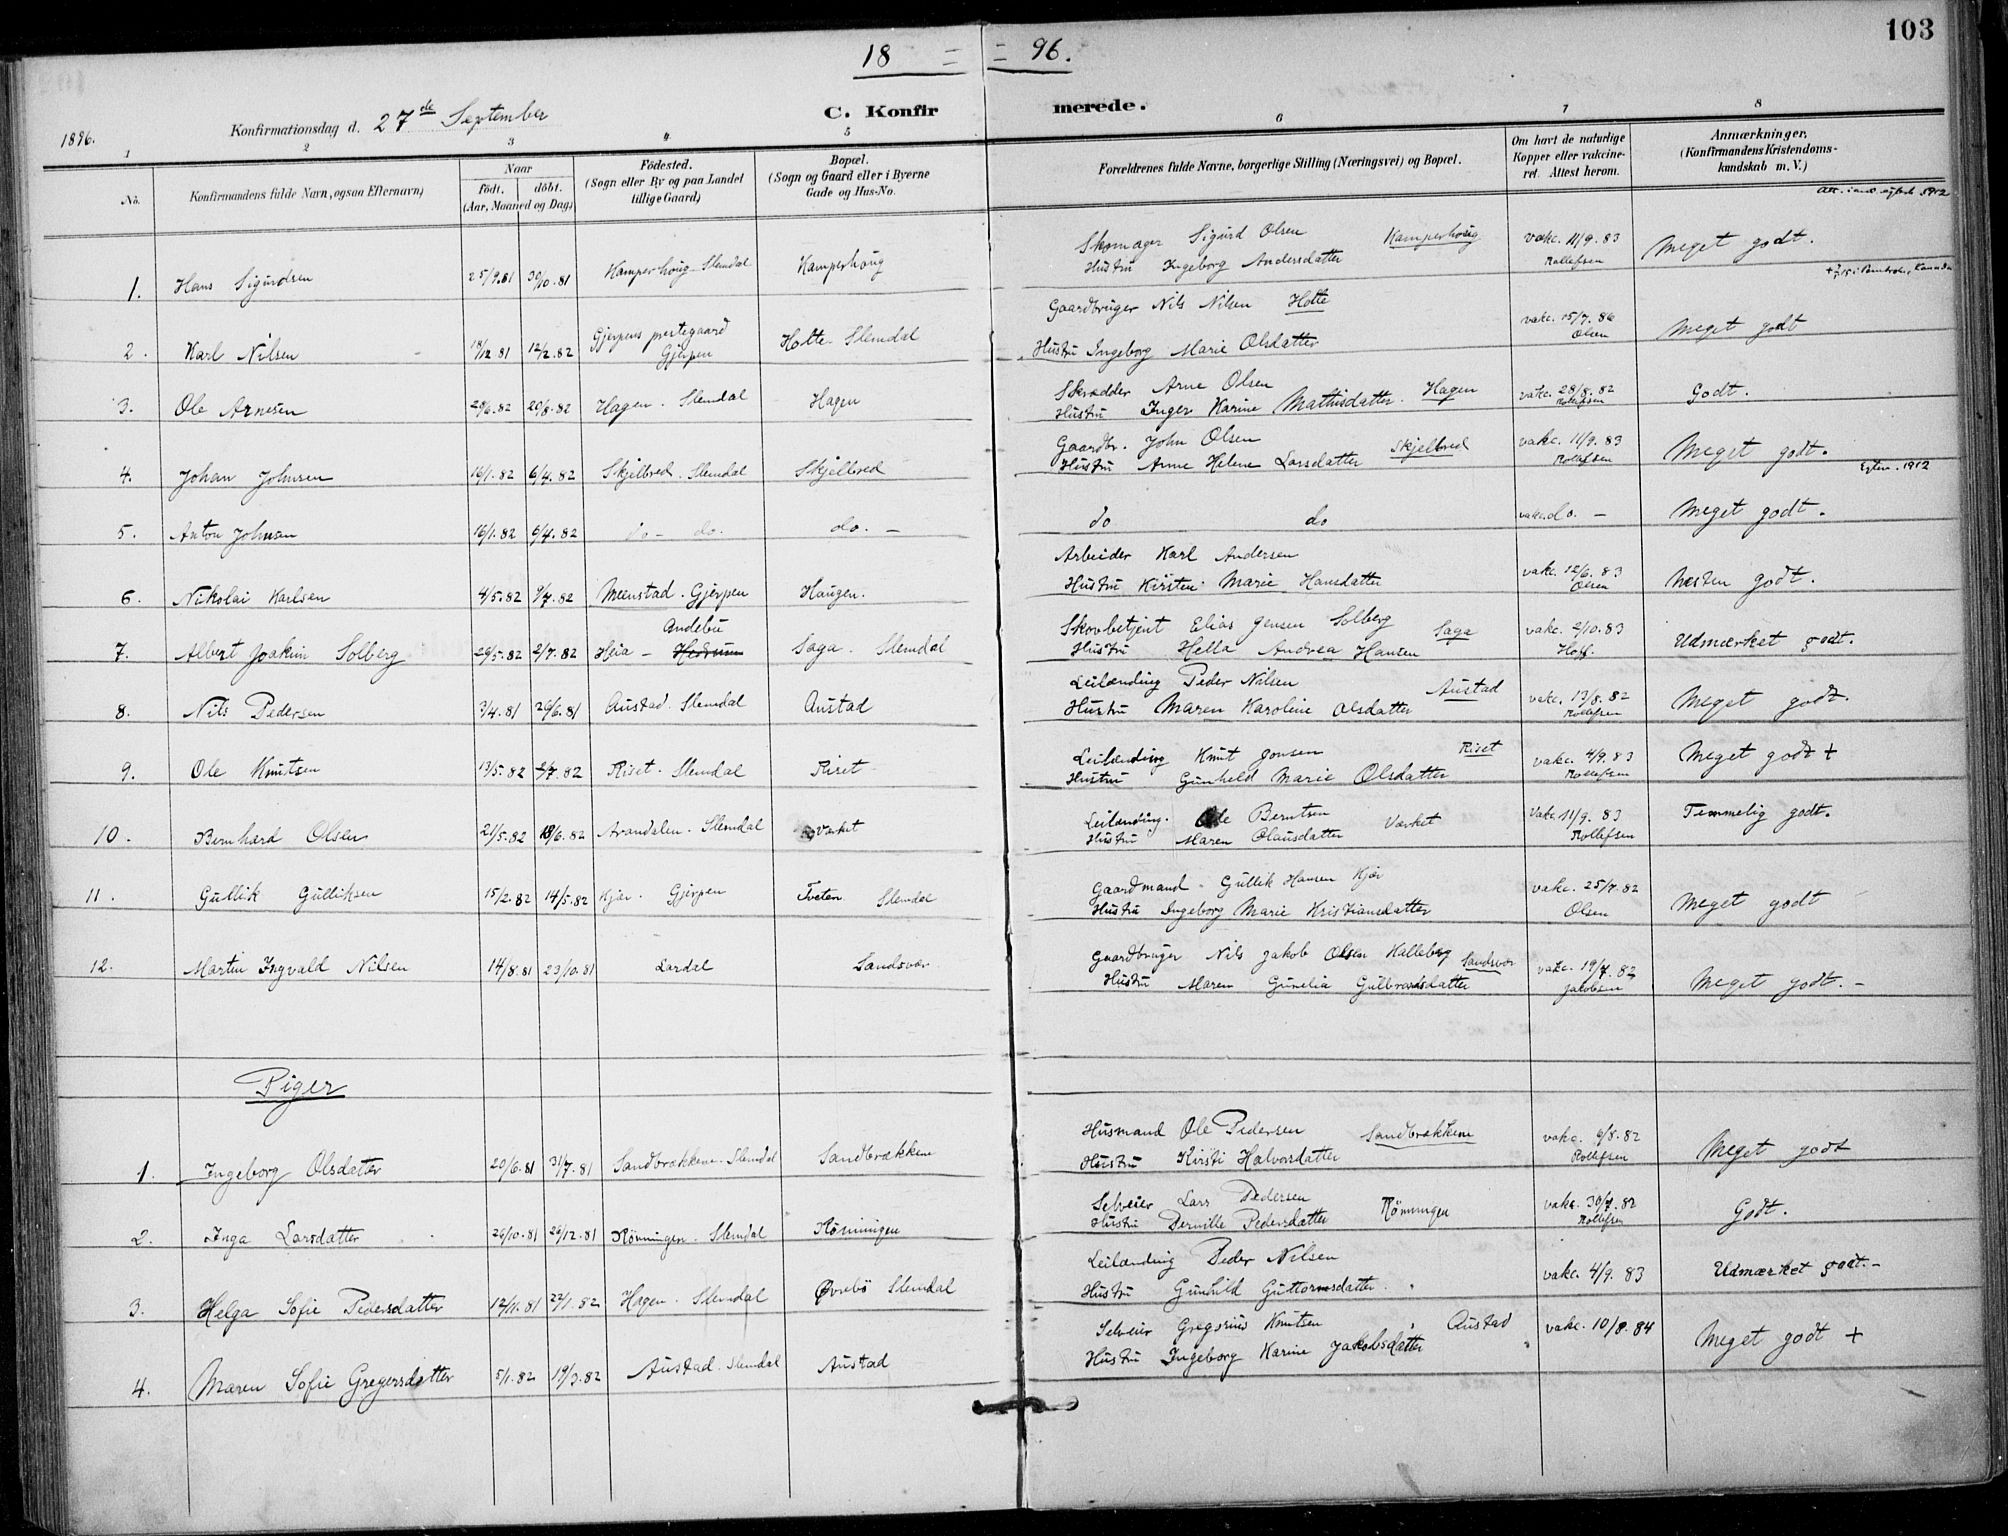 103
18 = = 96.
1896. Konfirmationsdag d. 27de September C. Konfirmerede.
1 2 3 4 5 6 7 8
No. Konfirmandens fulde Navn, ogsaa Efternavn) Naar født. døbt. (Aar, Maaned og Dag) Fødested. (Sogn eller By og paa Landet tillige Gaard) Bopæl. (Sogn og Gaard eller i Byerne Gade og Hus-No. Forældrenes fulde Navne, borgerlige Stilling (Næringsvei) og Bopæl. Om havt de naturlige Kopper eller vakcineret. Attest herom. Anmærkninger. (Konfirmandens Kristendomskundskab m. V.)
Skomager Sigurd Olsen Kamperhoug vakc. 11/9. 83
1. Hans Sigurdsen 25/9.81 30/10.81 Kamperhoug - Slemdal Kamperhoug Hustru Ingeborg Andersdatter Rollefsen Meget godt.
Gaardbruger Nils Nilsen Holte vakc. 15/7. 86
2. Karl Nilsen 18/12 81 12/2.82 Gjerpens prestegaard Gjerpen Holte - Slemdal Hustru Ingeborg Marie Olsdatter Olsen Meget godt
Skrædder Arne Olsen Hagen vakc. 28/8. 82
3. Ole Arnesen 29/6.82 20/8.82 Hagen. Slemdal Hagen Hustru Inger Karine Mathisdatter. Rollefsen Godt.
Gaardbr. John Olsen Skjelbred vakc. 11/9. 83
4. Johan Johnsen 16/1.82 6/4.82 Skjelbred. Slemdal Skjelbred Hustru Anne Helene Larsdatter Rollefsen Meget godt.
1912
5. Anton Johnsen 16/1.82 6/4.82 do - do. do. - do do vakc. do. - Meget godt.
Arbeider Karl Andersen vakc. 12/6. 83
6. Nikolai Karlsen 4/5.82 9/7.82 Meenstad. Gjerpen Haugen. Hustru Kirsten Marie Hansdatter Olsen Næsten godt.
Skovbetjent Elias Jensen Solberg Saga vakc. 2/10.83
7. Albert Joakim Solberg 29/5.82 2/7.82 Heia - Hedrum Andebu Saga. Slemdal Hustru Hella Andrea Hansen Hoff. Udmærket godt.
Leilænding Peder Nilsen Austad vakc. 13/8. 82
8. Nils Pedersen 3/4.81 26/6.81 Austad. Slemdal Austad Hustru Maren Karoline Olsdatter Rollefsen Meget godt.
Leilænding Knut Jonsen Riset vakc. 4/9. 83
9. Ole Knutsen 13/5.82 2/7.82 Riset. Slemdal Riset Hustru Gunhild Marie Olsdatter Rollefsen Meget godt +
Leilænding. Ole Berntsen Værket Vakc. 11/9. 83
10. Bernhard Olsen 21/5.82 18/6.82 Arondalen. Slemdal Værket Hustru Maren Olausdatter Rollefsen Temmelig godt.
Gaardmand. Gullik Hansen Kjær vakc. 25/7. 82
11. Gullik Gulliksen 15/2.82 14/5.82 Kjær. Gjerpen Tveten Slemdal Hustru Ingeborg Marie Kristiansdatter Olsen Meget godt
Gaardbruger Nils Jakob Olsen Kalleberg Sandsvær vakc. 19/7. 82
12. Martin Ingvald Nilsen 14/8.81 23/10.81 Lardal Sandsvær Hustru Maren Gunelia Gulbrandsdatter Jakobsen Meget godt. -
Piger
Husmand Ole Pedersen Sandbrækkene vakc. 6/8. 82
1. Ingeborg Olsdatter 20/6.81 31/7.81 Sandbrækkene. Slemdal Sandbrækkene Hustru Kirsti Halvorsdatter Rollefsen Meget godt
Selveier Lars Pedersen Rönningen vakc. 30/7. 82
2. Inga Larsdatter 26/10.81 26/12.81 Rönningen. Slemdal Rönningen Hustru Pedersdatter Rollefsen Godt.
Leilænding Peder Nilsen vakc. 4/9. 83
3. Helga Sofie Pedersdatter 12/11.81 22/1.82 Hagen. Slemdal Øvrebö Slemdal Hustru Gunhild Guttormsdatter. Udmærket godt. -
Selveier Gregorius Knutsen Austad vakc. 10/8. 84
4. Maren Sofie Gregersdatter 5/1.82 19/3.82 Austad. Slemdal Austad Hustru Ingeborg Karine Jakobsdatter Meget godt +